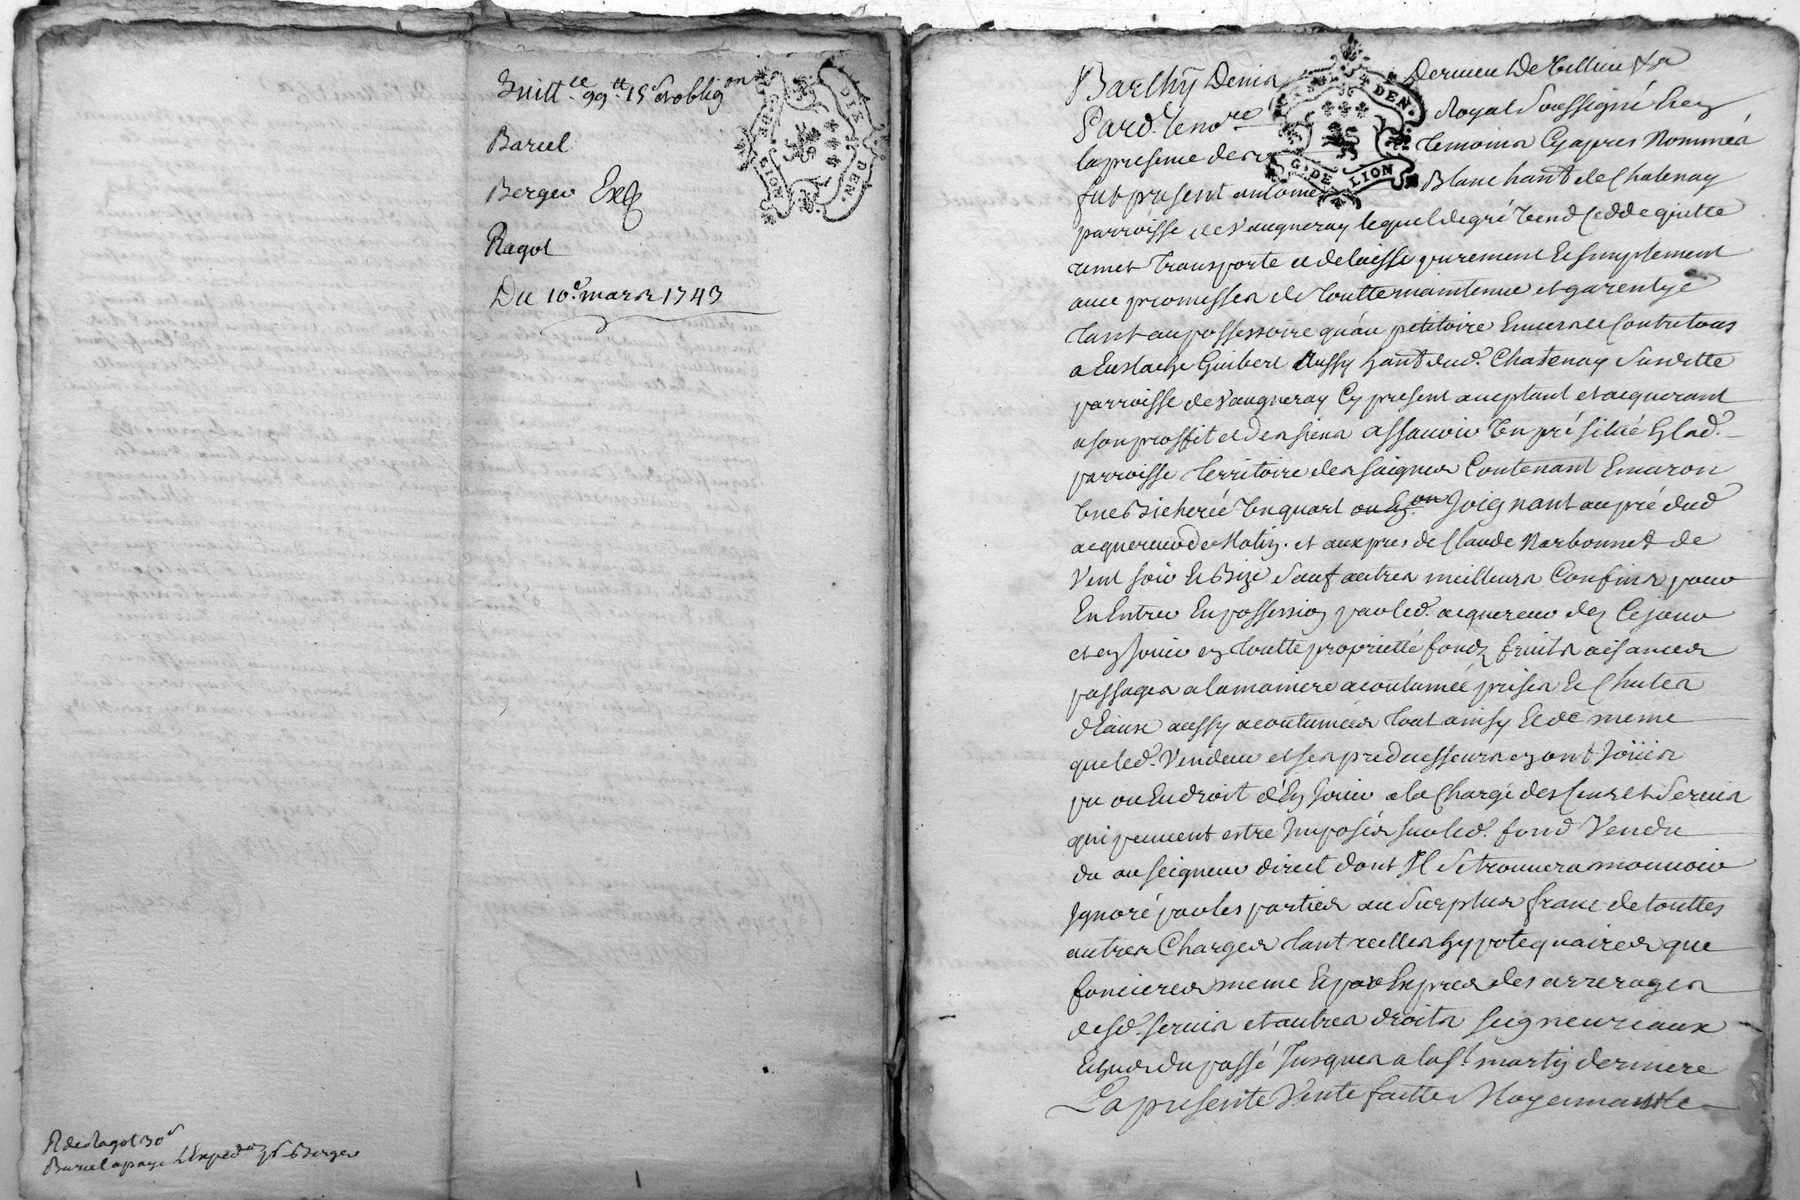 Quitt.ce 99tt 15s et oblig.on
Bariel
Berger Exp
Ragot
Du 10e. mars 1743
SIX DEN.
G. DE LION
R de Ragot 30s
Bariel a payé L'Exped.on Berger
SIX DEN.
G. DE LION
Pard. le no.re Royal soussigné Et en
la presence des temoins Cy apres Nommés
fut present antoine Blanc hant. de Chatenay
parroisse de Vaugneray lequel de gré Vend Cedde quitte
remet transporte et delaisse purement Et simplement
avec promesses de toutte maintenue et garentye
tant au possessoire qu'au petitoire Envers et Contre tous
a Eustache Guibert Aussy hant. dud. Chatenay susditte
parroisse de Vaugneray Cy present acceptant et acquerant
a son proffit et des siens assavoir Un pré situé En lad.
parroisse territoire des saignes Contenant Environ
Une Bicherée Un quart Joignant au pré dud
acquereur de Matin. et aux prés de Claude Narbonnet de
Vent soir Et Bize sauf autres meilleurs Confins pour
En Entrer En possession par led. acquereur des Ce jour
et en Jouir en toutte proprietté fondz fruits aisances
passages a la maniere acoutumée prises Et Chutes
d'Eaux aussy acoutumées tout ainsy Et de meme
que led. Vendeur et ses predecesseurs en ont Joüis
pu ou Eu droit d'En Jouir a la Charge des Cens et Servis
qui peuvent estre Imposés sur led. fond Vendu
du au seigneur direct dont Il se trouvera mouvoir
Ignoré par les parties au surplus franc de touttes
autres Charges tant reelles hypotequaires que
foncieres meme Et par Exprès des arrerages
desd. servis et autres droits seigneuriaux
Echus du passé Jusques a la St. martin derniere
La presente Vente faitte Moyennant Le